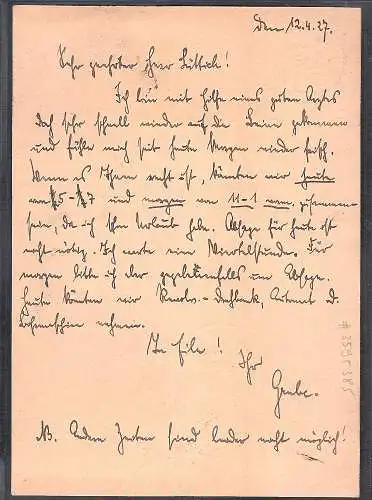 den 12.4.27.
Sehr geehrter Herr Lüttich!
Ich bin mit Hilfe eines guten Arztes
doch sehr schnell wieder auf die Beine gekommen
und fühle mich seit heute Morgen wieder frisch.
Wenn es Ihnen recht ist, könnten wir heute
von ½5-½7 und morgen von 11-1 vorm. zusammen
sein, da ich schon Urlaub habe. Absage für heute ist
nicht nötig. Ich warte eine Viertelstunde. Für
morgen bitte ich Sie gegebenenfalls um Absage.
Heute könnten wir Revolv.-Drehbank, Automat u.
Bohrmaschine nehmen.
In Eile!
Ihr
Grube.
NB. Andere Zeiten sind leider nicht möglich!